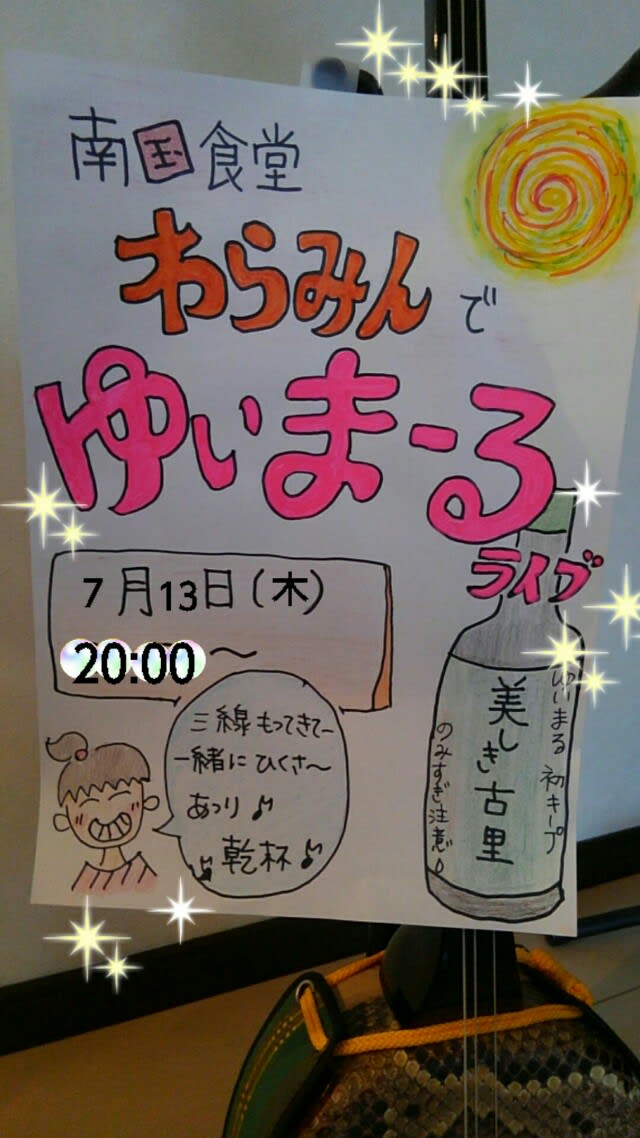 南国食堂
わらみんで
ゆいまーる
ライブ
7月13日(木)
20:00~
三線もってきてー
一緒にひくさ〜
あっり♪
♪乾杯♪
ゆいまる 初キープ
美しき古里
のみすぎ注意